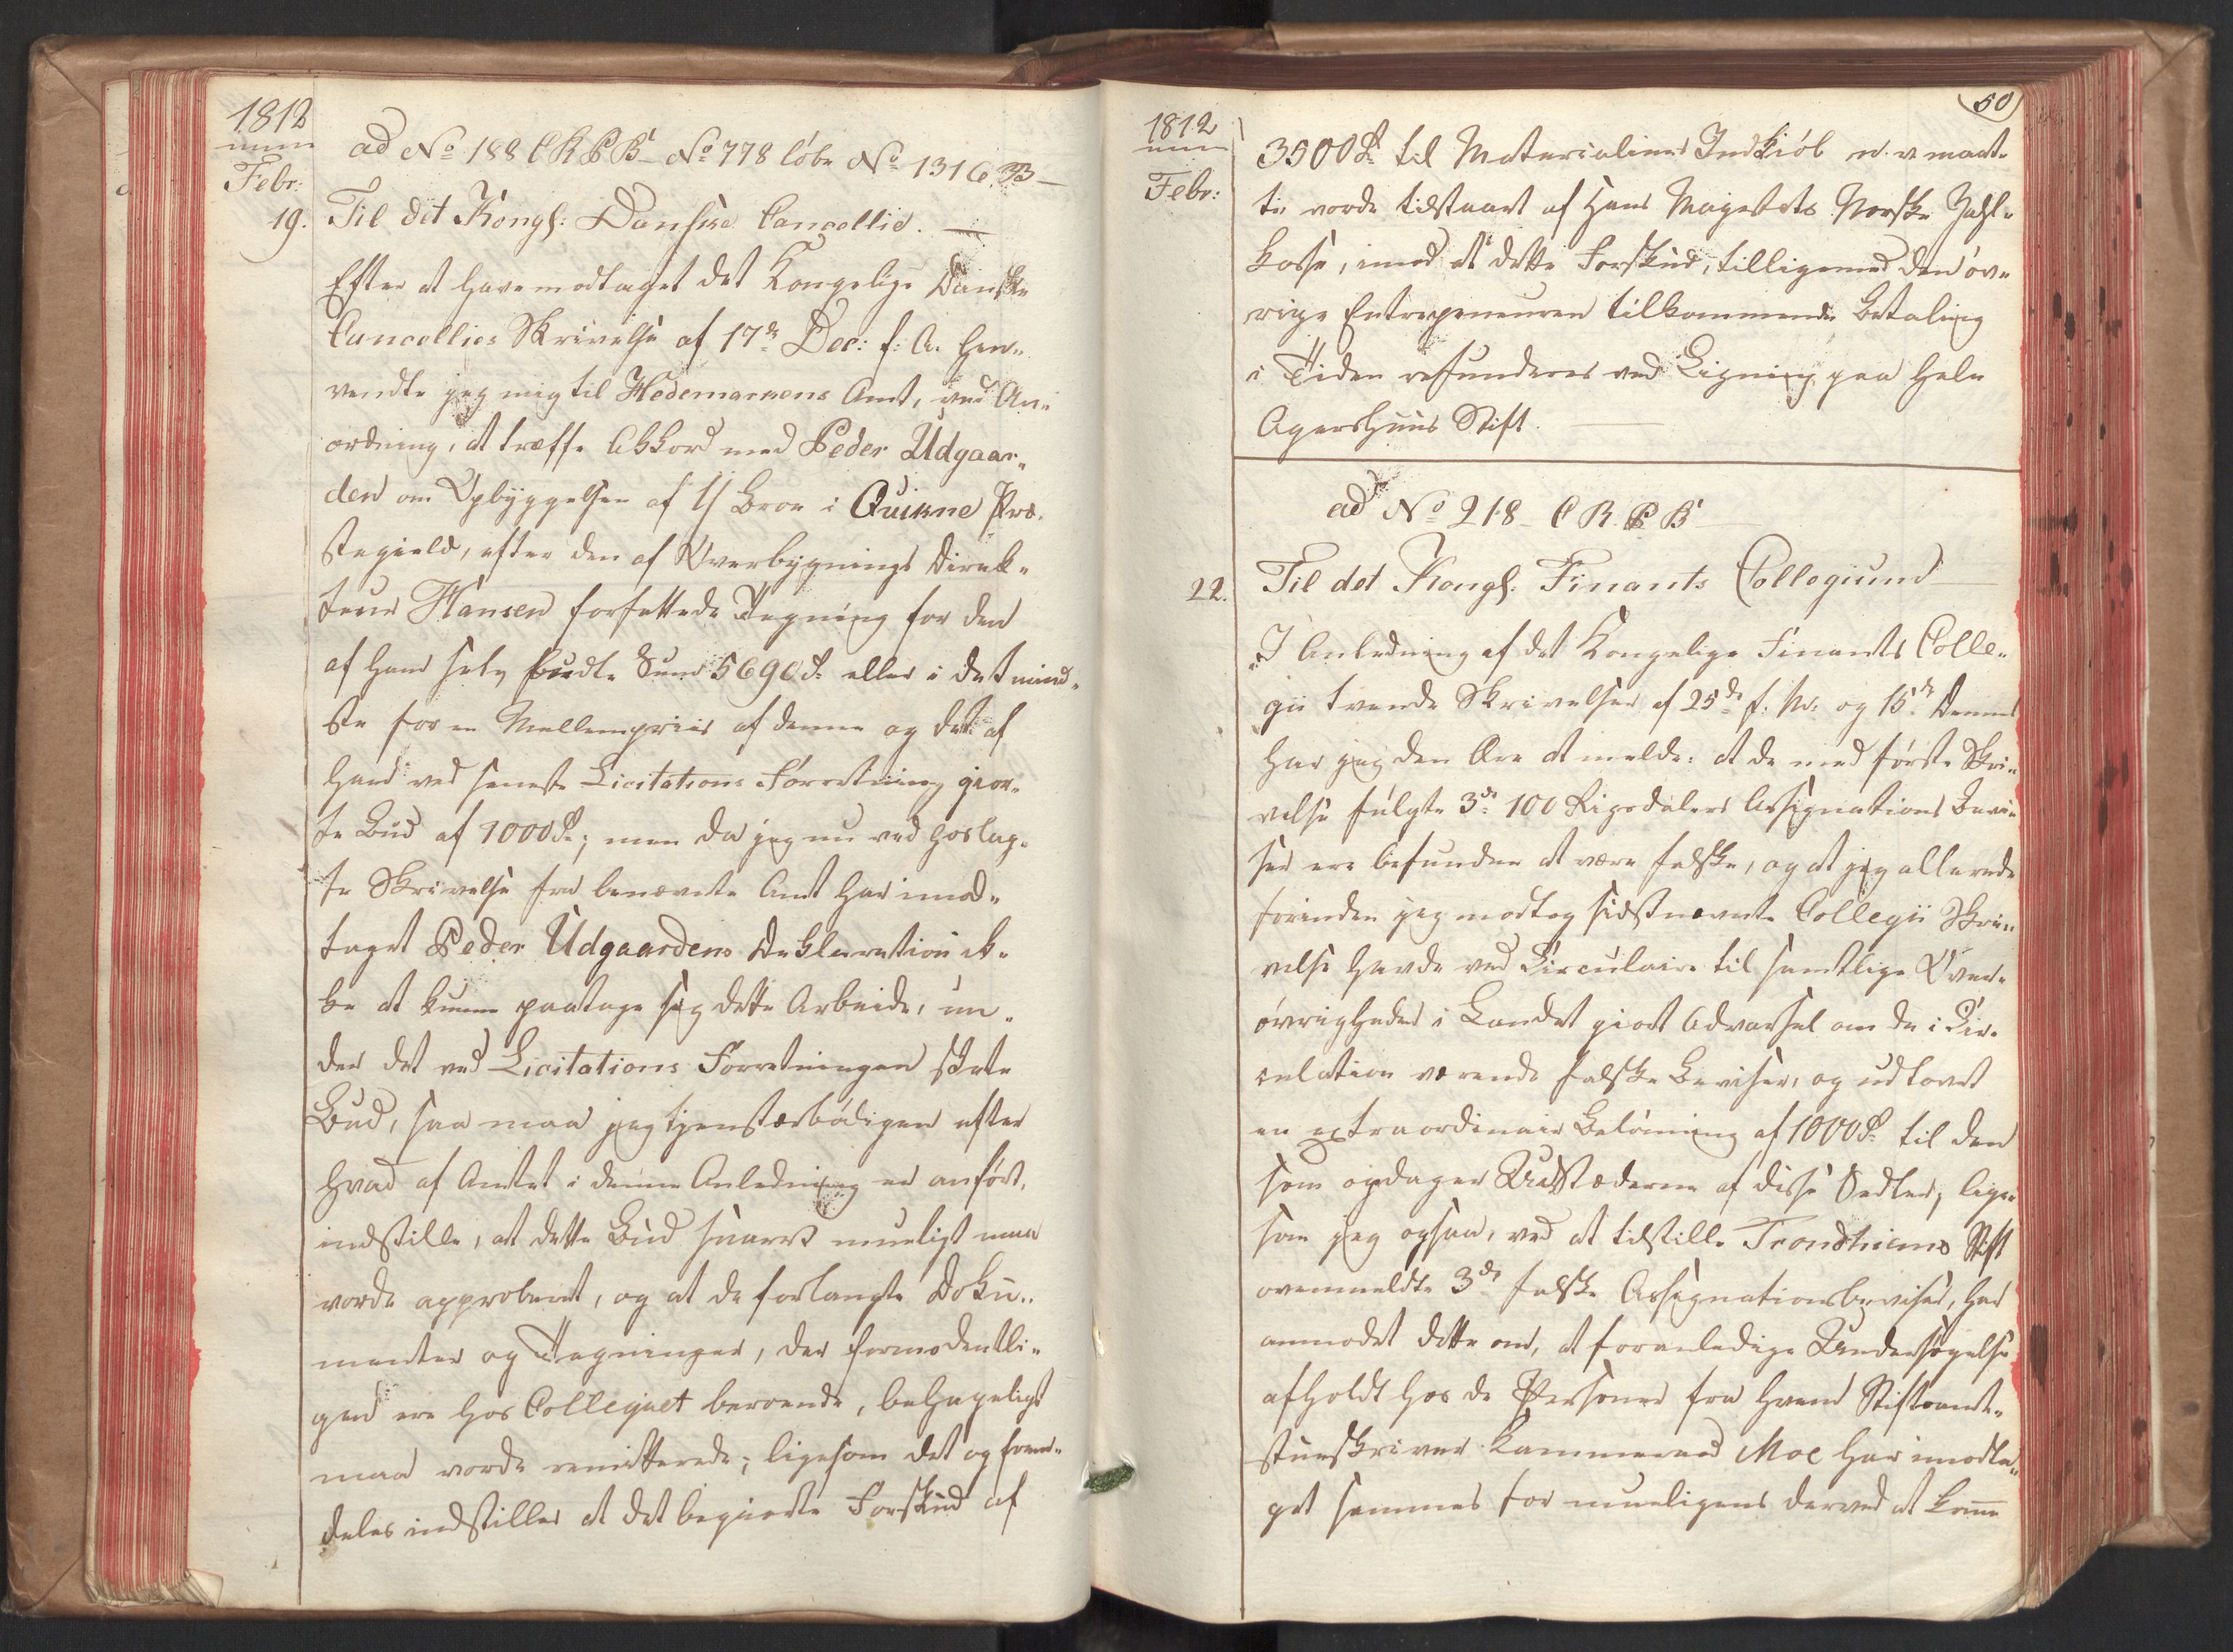 1812
Febr:
19.
ad No 188 C R P B No 778 løbe No 1316. B
Til det Kongl: Danske Cancellie.
Efter at have modtaget det Kongelige Danske
Cancellies Skrivelse af 17de Dec: f: A. hen„
vendte jeg mig til Hedemarkens Amt, ved An„
ordning, at træffe Akkord med Peder Udgaar„
den om Opbyggelsen af 4 Broe i Quikne Præ„
stegield, efter den af Overbygnings Direk„
teur Hansen forfattede Tegning for den
af ham selv budte Sum 5690 Rd eller i det mind„
ste for en Mellempriis af denne og det af
ham ved seneste Licitations Forretning gior„
te Bud af 1000 Rd; men da jeg nu ved hoslag„
te Skrivelse fra benævnte Amt har imod„
taget Peder Udgaardens Deklaration ik„
ke at kunne paatage sig dette Arbeide, un„
der det ved Licitations Forretningen skete
Bud, saa maa jeg tjenstærbødigen efter
hvad af Amtet i denne Anledning er anført,
indstille, at dette Bud snarest mueligt maa
vorde approberet, og at de forlangte Doku„
menter og Tegninger, der formodentli„
gen ere hos Collegiet beroende, behageligst
maa vorde remitterede; ligesom det og frem„
deles indstilles at det begierte Forskud af
50
1812
Febr:
3500 Rd til Materialiers Indkiøb m. v maat„
te vorde tilstaaet af Hans Majestets Norske Zahl„
kasse, imod at dette Forskud, tilligemed den øv„
rige Entrepreneuren tilkommende Betaling
i Tiden refunderes ved Ligning paa hele
Agershuus Stift.
ad No 218 C R P B
22.
Til det Kongl. Finants Collegium
I Anledning af det Kongelige Finants Colle„
gii tvende Skrivelser af 25de f. M: og 15de Dennes
har jeg den Ære at melde: at de med første Skri„
velse fulgte 3de 100 Rigsdalers Assignations Bevi„
ser ere befunden at være falske, og at jeg allerede
forinden jeg modtog sidstnævnte Collegii Skri„
velse havde ved Circulaire til samtlige Over„
øvrigheder i Landet giort Advarsel om de i Cir„
culation værende falske Beviser, og udlovet
en extraordinair Belønning af 1000 Rd til den
som opdager Udstæderne af disse Sedler, lige„
som jeg ogsaa, ved at tilstille Trondhiems Stift
ovenmeldte 3de falske Assignationsbeviser, har
anmodet dette om, at foranledige Undersøgelse
afholdt hos de Personer fra hvem Stiftamt„
stueskriver Kammerraad Moe har imodta„
get sammes for mueligens derved at komme